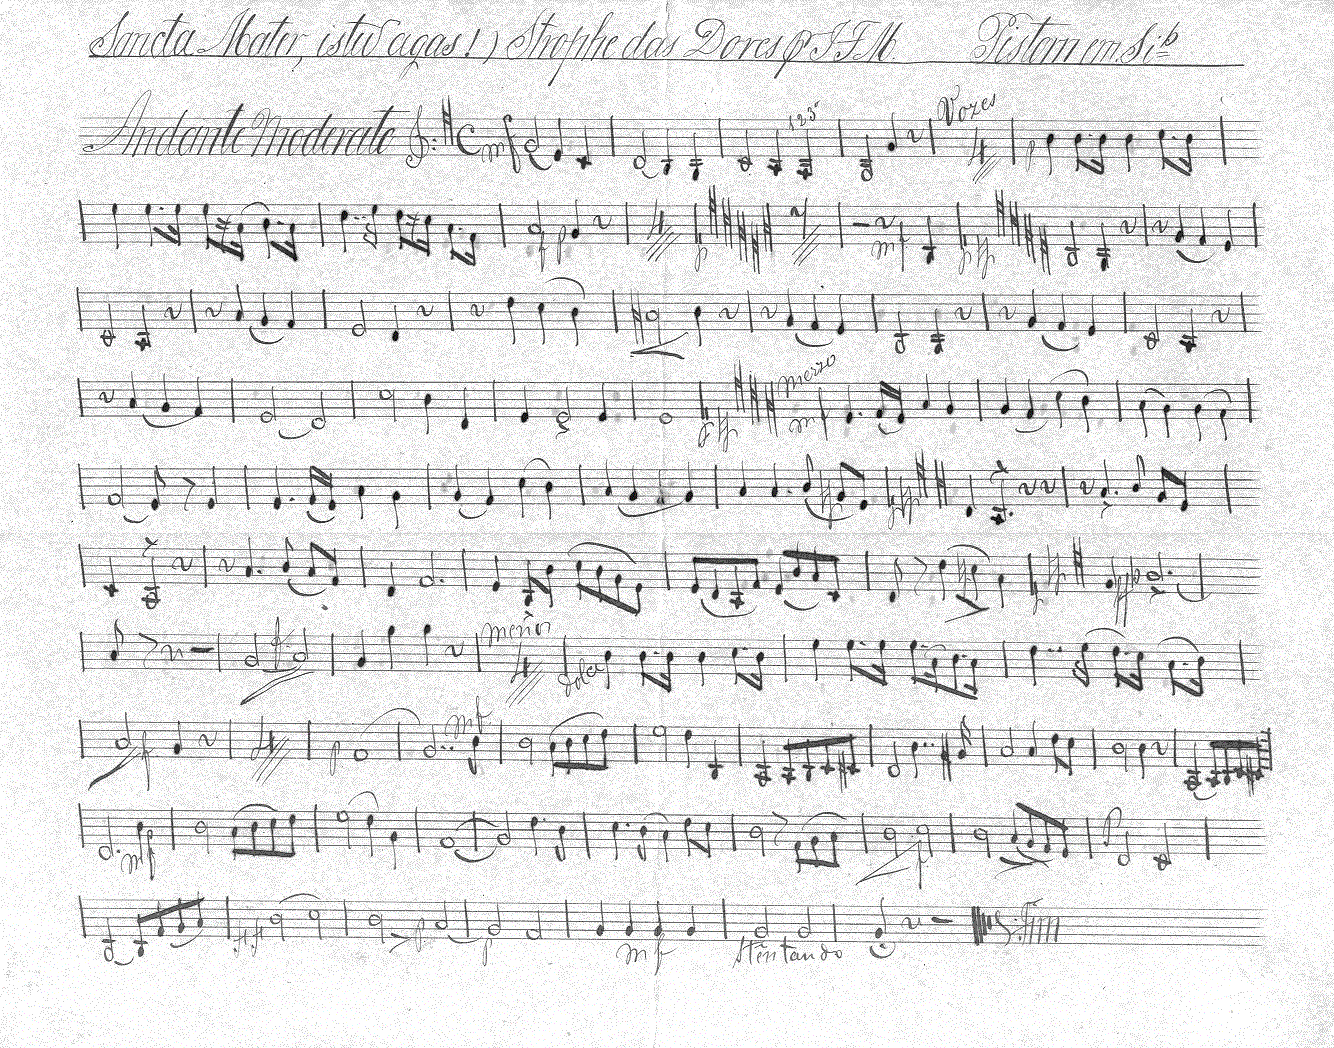 Sancta Mater, istud agas!) Strophe das Dores p. J.F.M. Pistam em Si b
Andante Moderato mf 123 Vozes 4 p
f p 4 p mf pp
mezzo
ff mf
ff pp
pp
menor
4 dolce
f 4 p mf
mf
f p
ff p p mf Stentando Fim